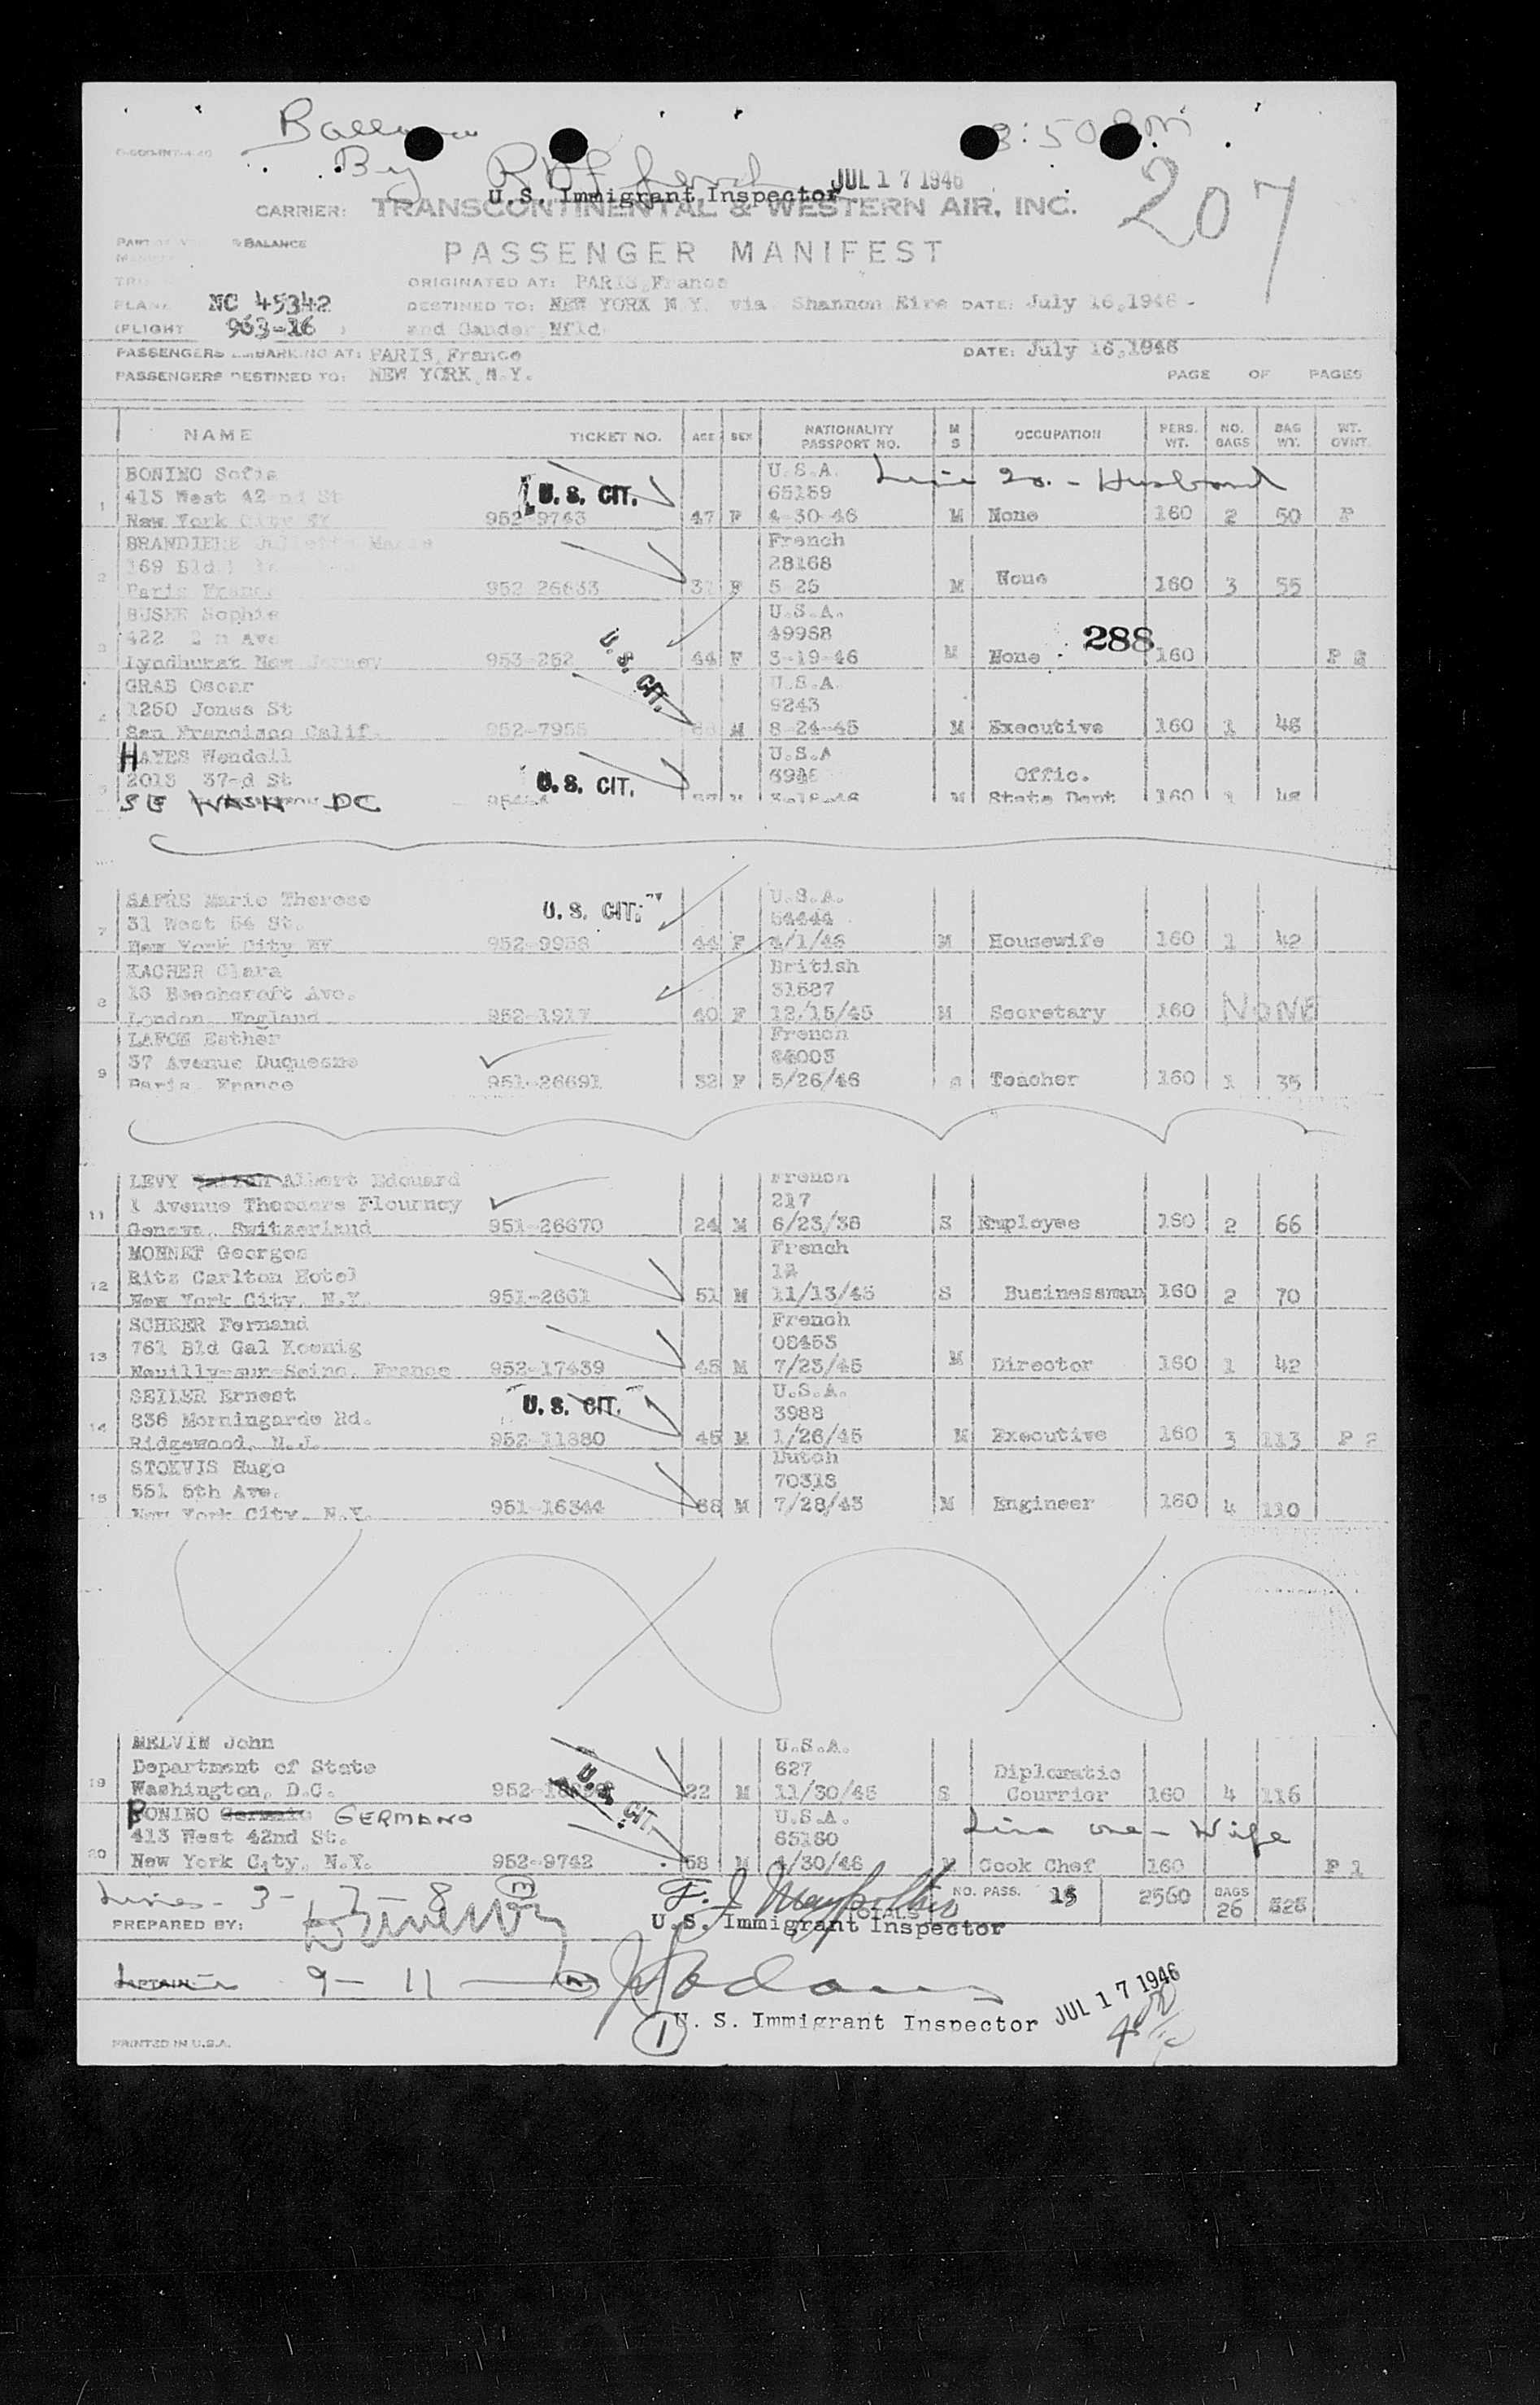 3:50 PM
By
JUL 17 1946
207
U.S. Immigrant Inspector
CARRIER: TRANSCONTINENTAL & WESTERN AIR, INC.
BALANCE
PASSENGER MANIFEST
ORIGINATED AT: PARIS, France
PLANE NC 45342 DESTINED TO: NEW YORK N.Y. via Shannon Eire DATE: July 16, 1946 -
(FLIGHT 963-16 ) and Gander Nfld
PASSENGERS EMBARKING AT: PARIS, France DATE: July 16, 1946
PASSENGERS DESTINED TO: NEW YORK, N.Y. PAGE OF PAGES
NAME TICKET NO. AGE SEX NATIONALITY PASSPORT NO. M S OCCUPATION PERS. WT. NO. BAGS BAG WT. WT. OVNT.
BONINO Sofia U.S.A. Line 20. - Husband
413 West 42 nd St U. S. CIT. 65159
1 New York City NY 952-9743 47 F 4-30-46 M None 160 2 50 P
BRANDIERE Juliette Marie French
169 Bld 28168
2 Paris France 952 26633 F 5 26 M None 160 3 55
Sophie U.S.A.
422 Ave U. S. CIT. 49968 288
3 Lyndhurst New Jersey 953-262 44 F 3-19-46 M None 160 P
GRAB Oscar U.S.A.
1250 Jones St 9243
4 San Francisco Calif. 952-7955 M 8-24-45 M Executive 160 1 48
HAYES Wendell U.S.A
2013 37-d St U. S. CIT. Offic.
5 SE WASH DC M State Dept 160 1 48
Marie Therese U.S.A.
31 West 54 St. U. S. CIT. 54444
7 New York City NY 952-9958 44 F 4/1/46 M Housewife 160 1 42
KACHER Clara British
18 Beechcroft Ave. 31587
8 London, England 952-1917 40 F 12/15/45 M Secretary 160 NONE
LAFON Esther French
37 Avenue Duquesne
9 Paris, France 951-26691 32 F 5/26/46 s Teacher 160 1 35
LEVY Albert Edouard French
1 Avenue Theodore Flournoy 217
11 Geneva, Switzerland 951-26670 24 M 6/23/38 S Employee 160 2 66
MONNET Georges French
Ritz Carlton Hotel 12
12 New York City, N.Y. 951-2661 51 M 11/13/45 S Businessman 160 2 70
SCHEER Fernand French
761 Bld Gal Koenig 08453
13 Neuilly-sur-Seine, France 952-17439 45 M 7/23/45 M Director 160 1 42
SEILER Ernest U. S. CIT. U.S.A.
836 Morningarde Rd. 3988
14 Ridgewood, N.J. 952-11880 45 M 1/26/45 M Executive 160 3 113 P 2
STOKVIS Hugo Dutch
551 5th Ave. 70318
15 New York City, N.Y. 951-16344 68 M 7/28/43 M Engineer 160 4 110
MELVIN John U.S.A.
Department of State U. S. CIT. 627 Diplomatic
19 Washington, D.C. 22 M 11/30/45 S Courrior 160 4 116
BONINO Germain GERMANO U.S.A. Line one - Wife
413 West 42nd St. 65160
20 New York City, N.Y. 952-9742 58 M 4/30/46 M Cook Chef 160 P 1
Lines - 3 - 7 - 8 NO. PASS. 15 2560 BAGS 26
PREPARED BY: U.S. Immigrant Inspector
CAPTAIN: 9 - 11
U. S. Immigrant Inspector JUL 17 1946
1
PRINTED IN U.S.A.